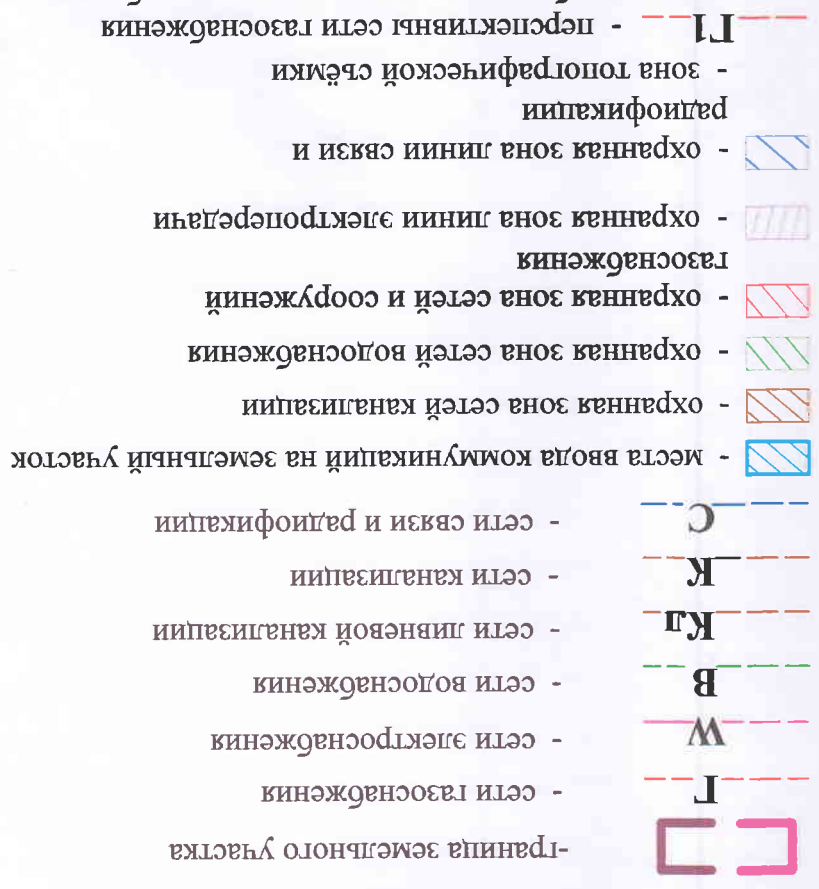 -граница земельного участка
Г - сети газоснабжения
W - сети электроснабжения
В - сети водоснабжения
Кл - сети ливневой канализации
К - сети канализации
С - сети связи и радиофикации
- места ввода коммуникаций на земельный участок
- охранная зона сетей канализации
- охранная зона сетей водоснабжения
- охранная зона сетей и сооружений
газоснабжения
- охранная зона линии электропередачи
- охранная зона линии связи и
радиофикации
- зона топографической съёмки
Г1 - перспективны сети газоснабжения